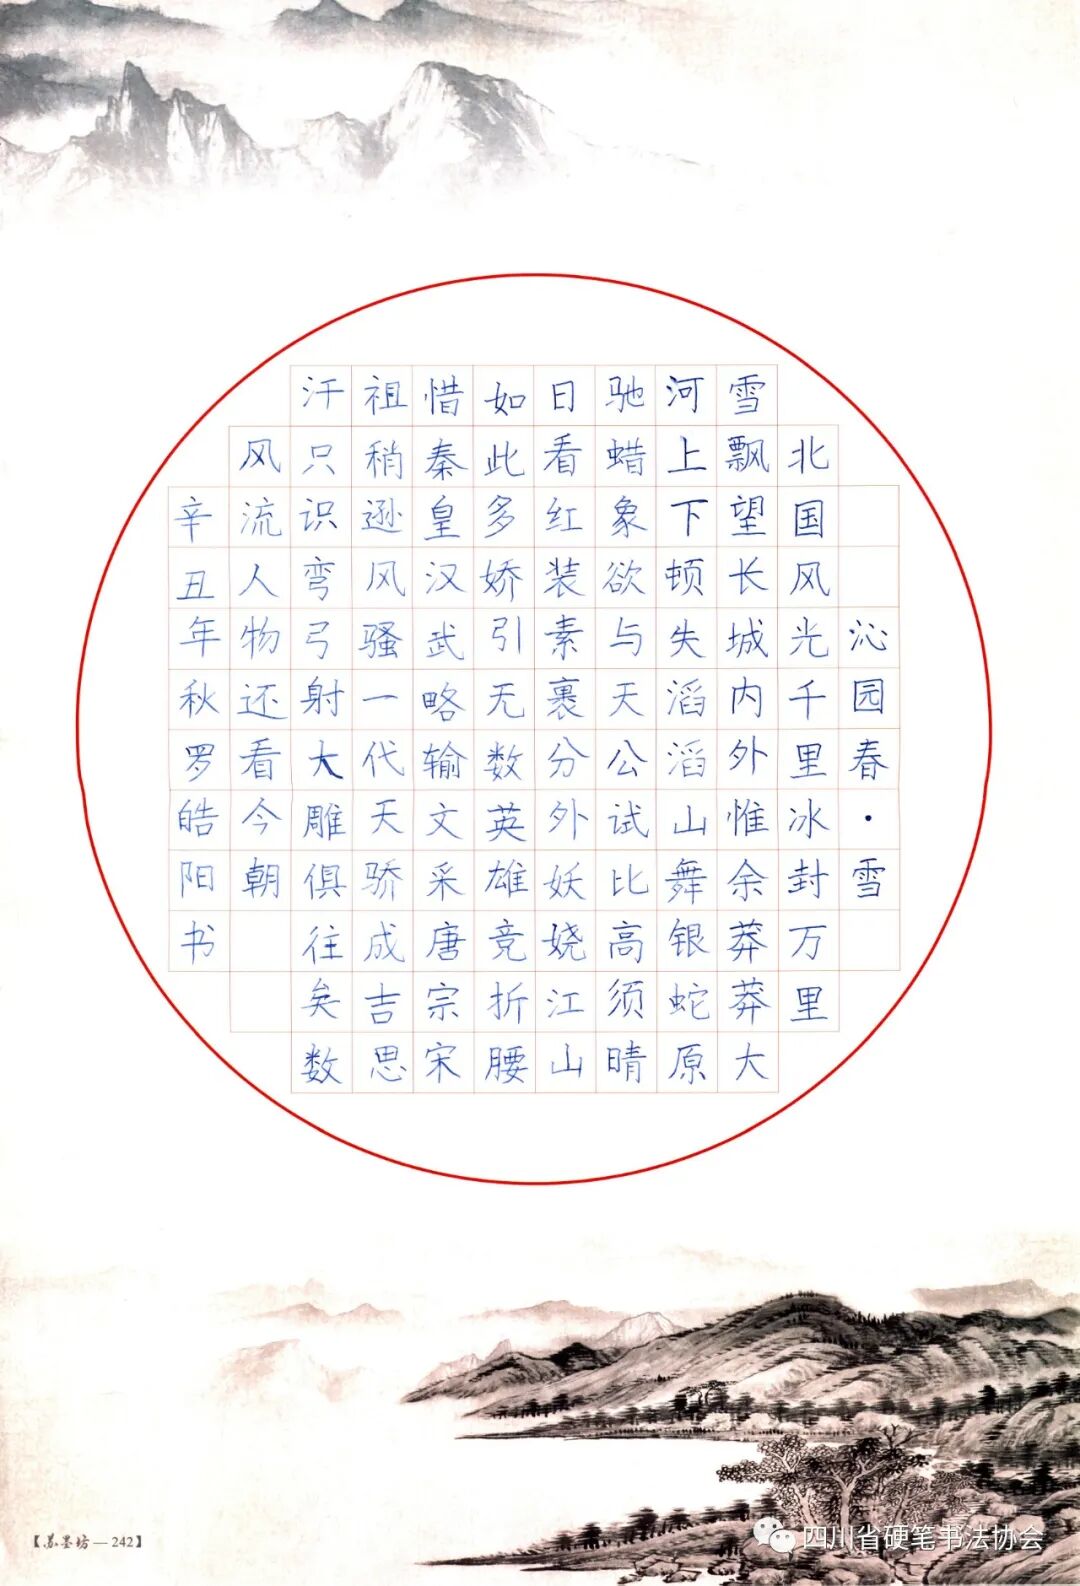 沁园春·雪
北国风光千里冰封万里
雪飘望长城内外惟余莽莽大
河上下顿失滔滔山舞银蛇原
驰蜡象欲与天公试比高须晴
日看红装素裹分外妖娆江山
如此多娇引无数英雄竞折腰
惜秦皇汉武略输文采唐宗宋
祖稍逊风骚一代天骄成吉思
汗只识弯弓射大雕俱往矣数
风流人物还看今朝
辛丑年秋罗皓阳书
【苏墨坊—242】
四川省硬笔书法协会